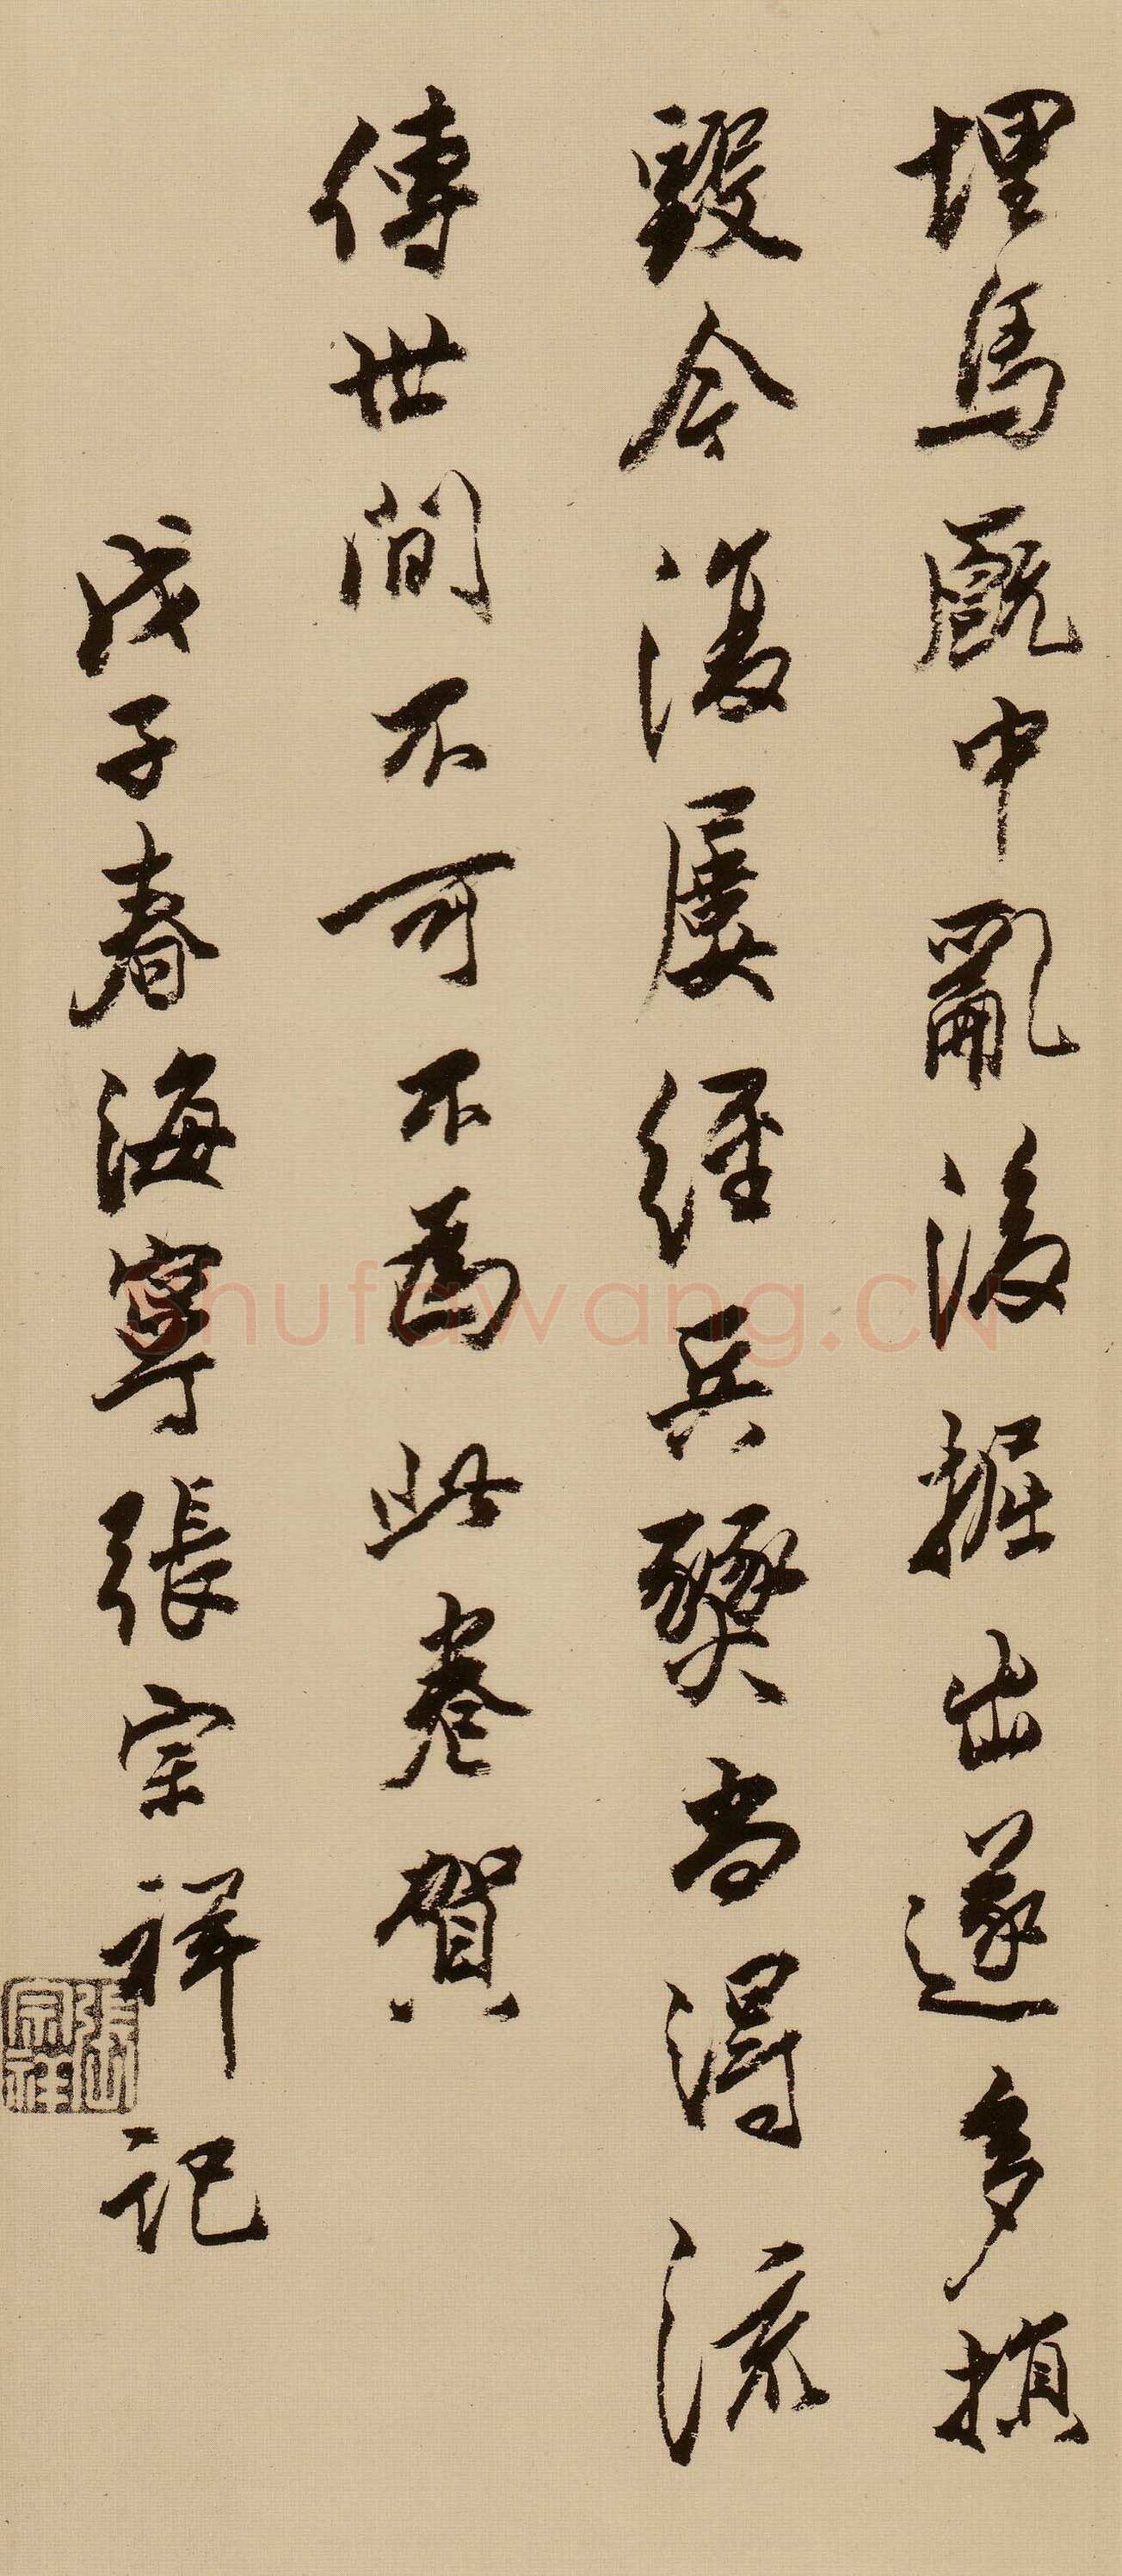 埋馬厩中亂後掘出遂多損
毀今復屢經兵燹尚得流
傳世間不可不為此卷賀
戊子春海寧張宗祥記
張宗祥
shufawang.CN